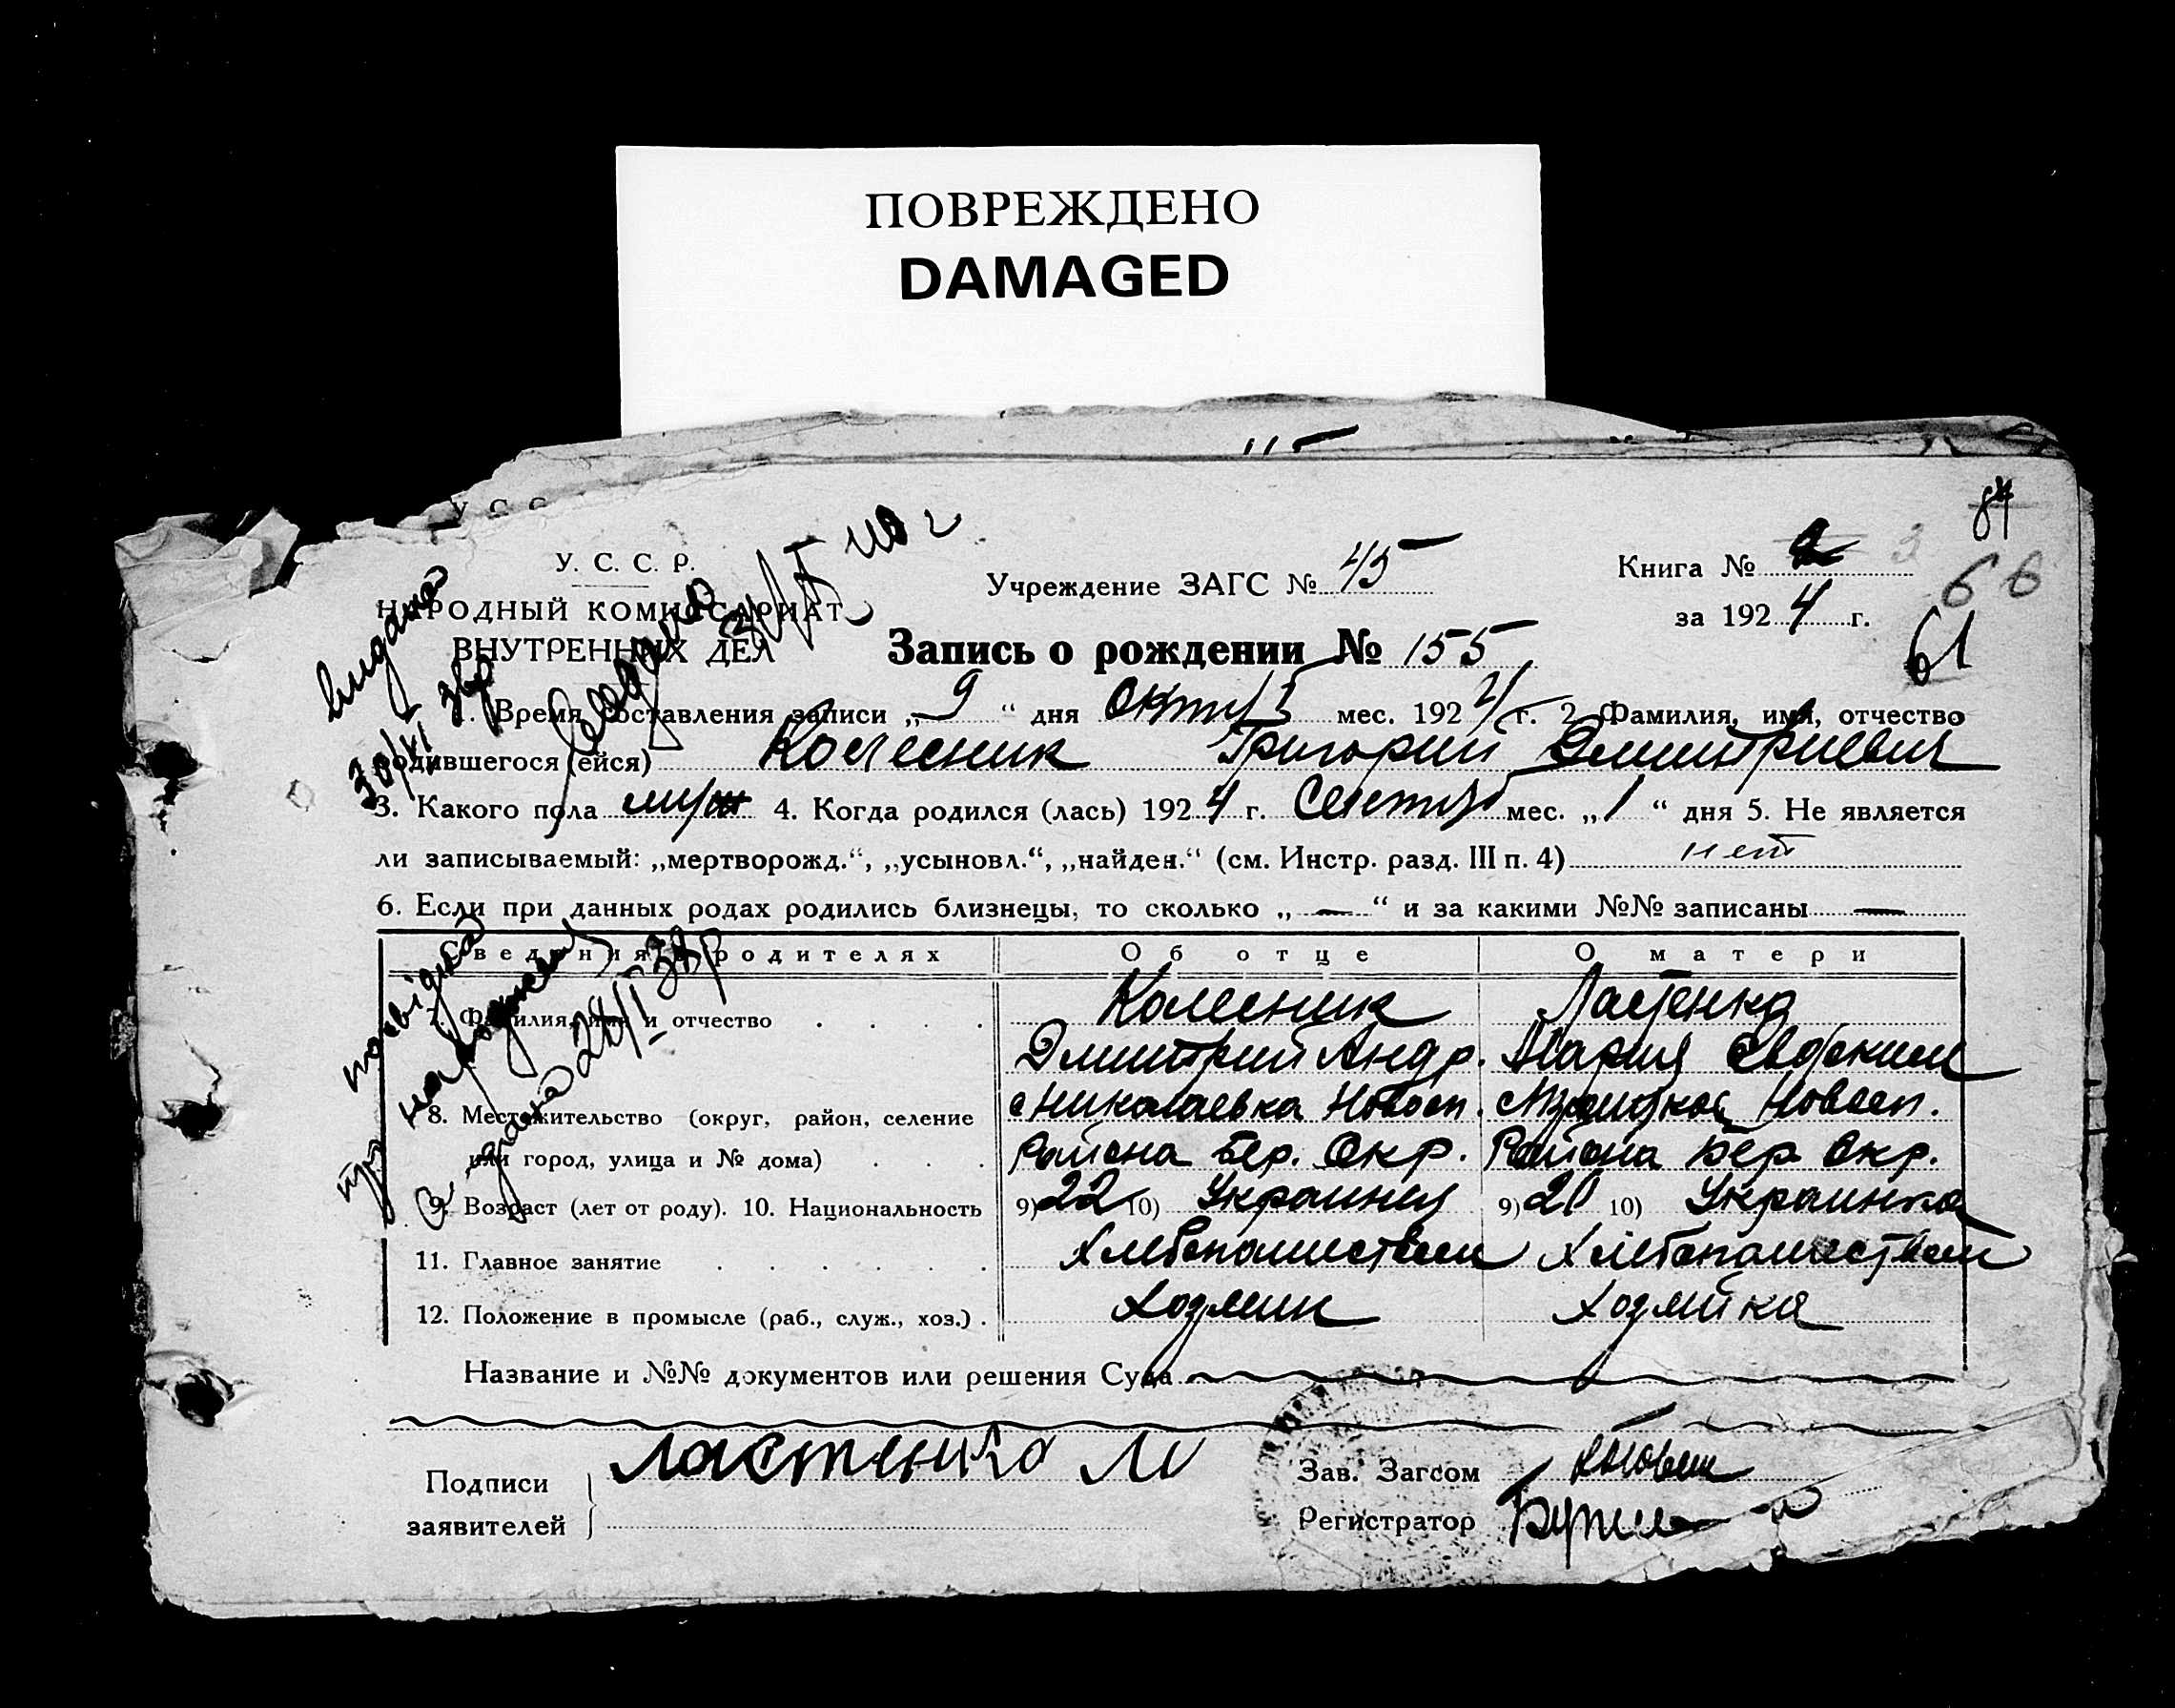 ПОВРЕЖДЕНО
DAMAGED
У. С. С. Р.
НАРОДНЫЙ КОМИССАРИАТ
ВНУТРЕННИХ ДЕЛ
Учреждение ЗАГС № 45
Книга № 2 3
84
66
за 1924 г.
61
Запись о рождении № 155
1. Время составления записи „9“ дня Октяб мес. 1924 г. 2. Фамилия, имя, отчество
родившегося (ейся) Колесник Григорий Дмитриевич
3. Какого пола муж 4. Когда родился (лась) 1924 г. Сентяб мес. „1“ дня 5. Не является
ли записываемый: „мертворожд.“, „усыновл.“, „найден.“ (см. Инстр. разд. III п. 4) нет
6. Если при данных родах родились близнецы, то сколько „—“ и за какими №№ записаны —
Сведения о родителях Об отце О матери
7. Фамилия, имя и отчество Колесник Ластенко
Дмитрий Андр. Мария Евдоким
8. Местожительство (округ, район, селение Николаевка Новосп. Новосп.
или город, улица и № дома) Района Бер. Окр. Района Бер Окр.
9. Возраст (лет от роду). 10. Национальность 9) 22 10) Украинец 9) 20 10) Украинка
11. Главное занятие Хлебопашеством Хлебопашеством
12. Положение в промысле (раб., служ., хоз.) Хозяин Хозяйка
Название и №№ документов или решения Суда
Подписи
заявителей
Ластенко М
Зав. Загсом
Регистратор
видана
посвідка
про народження